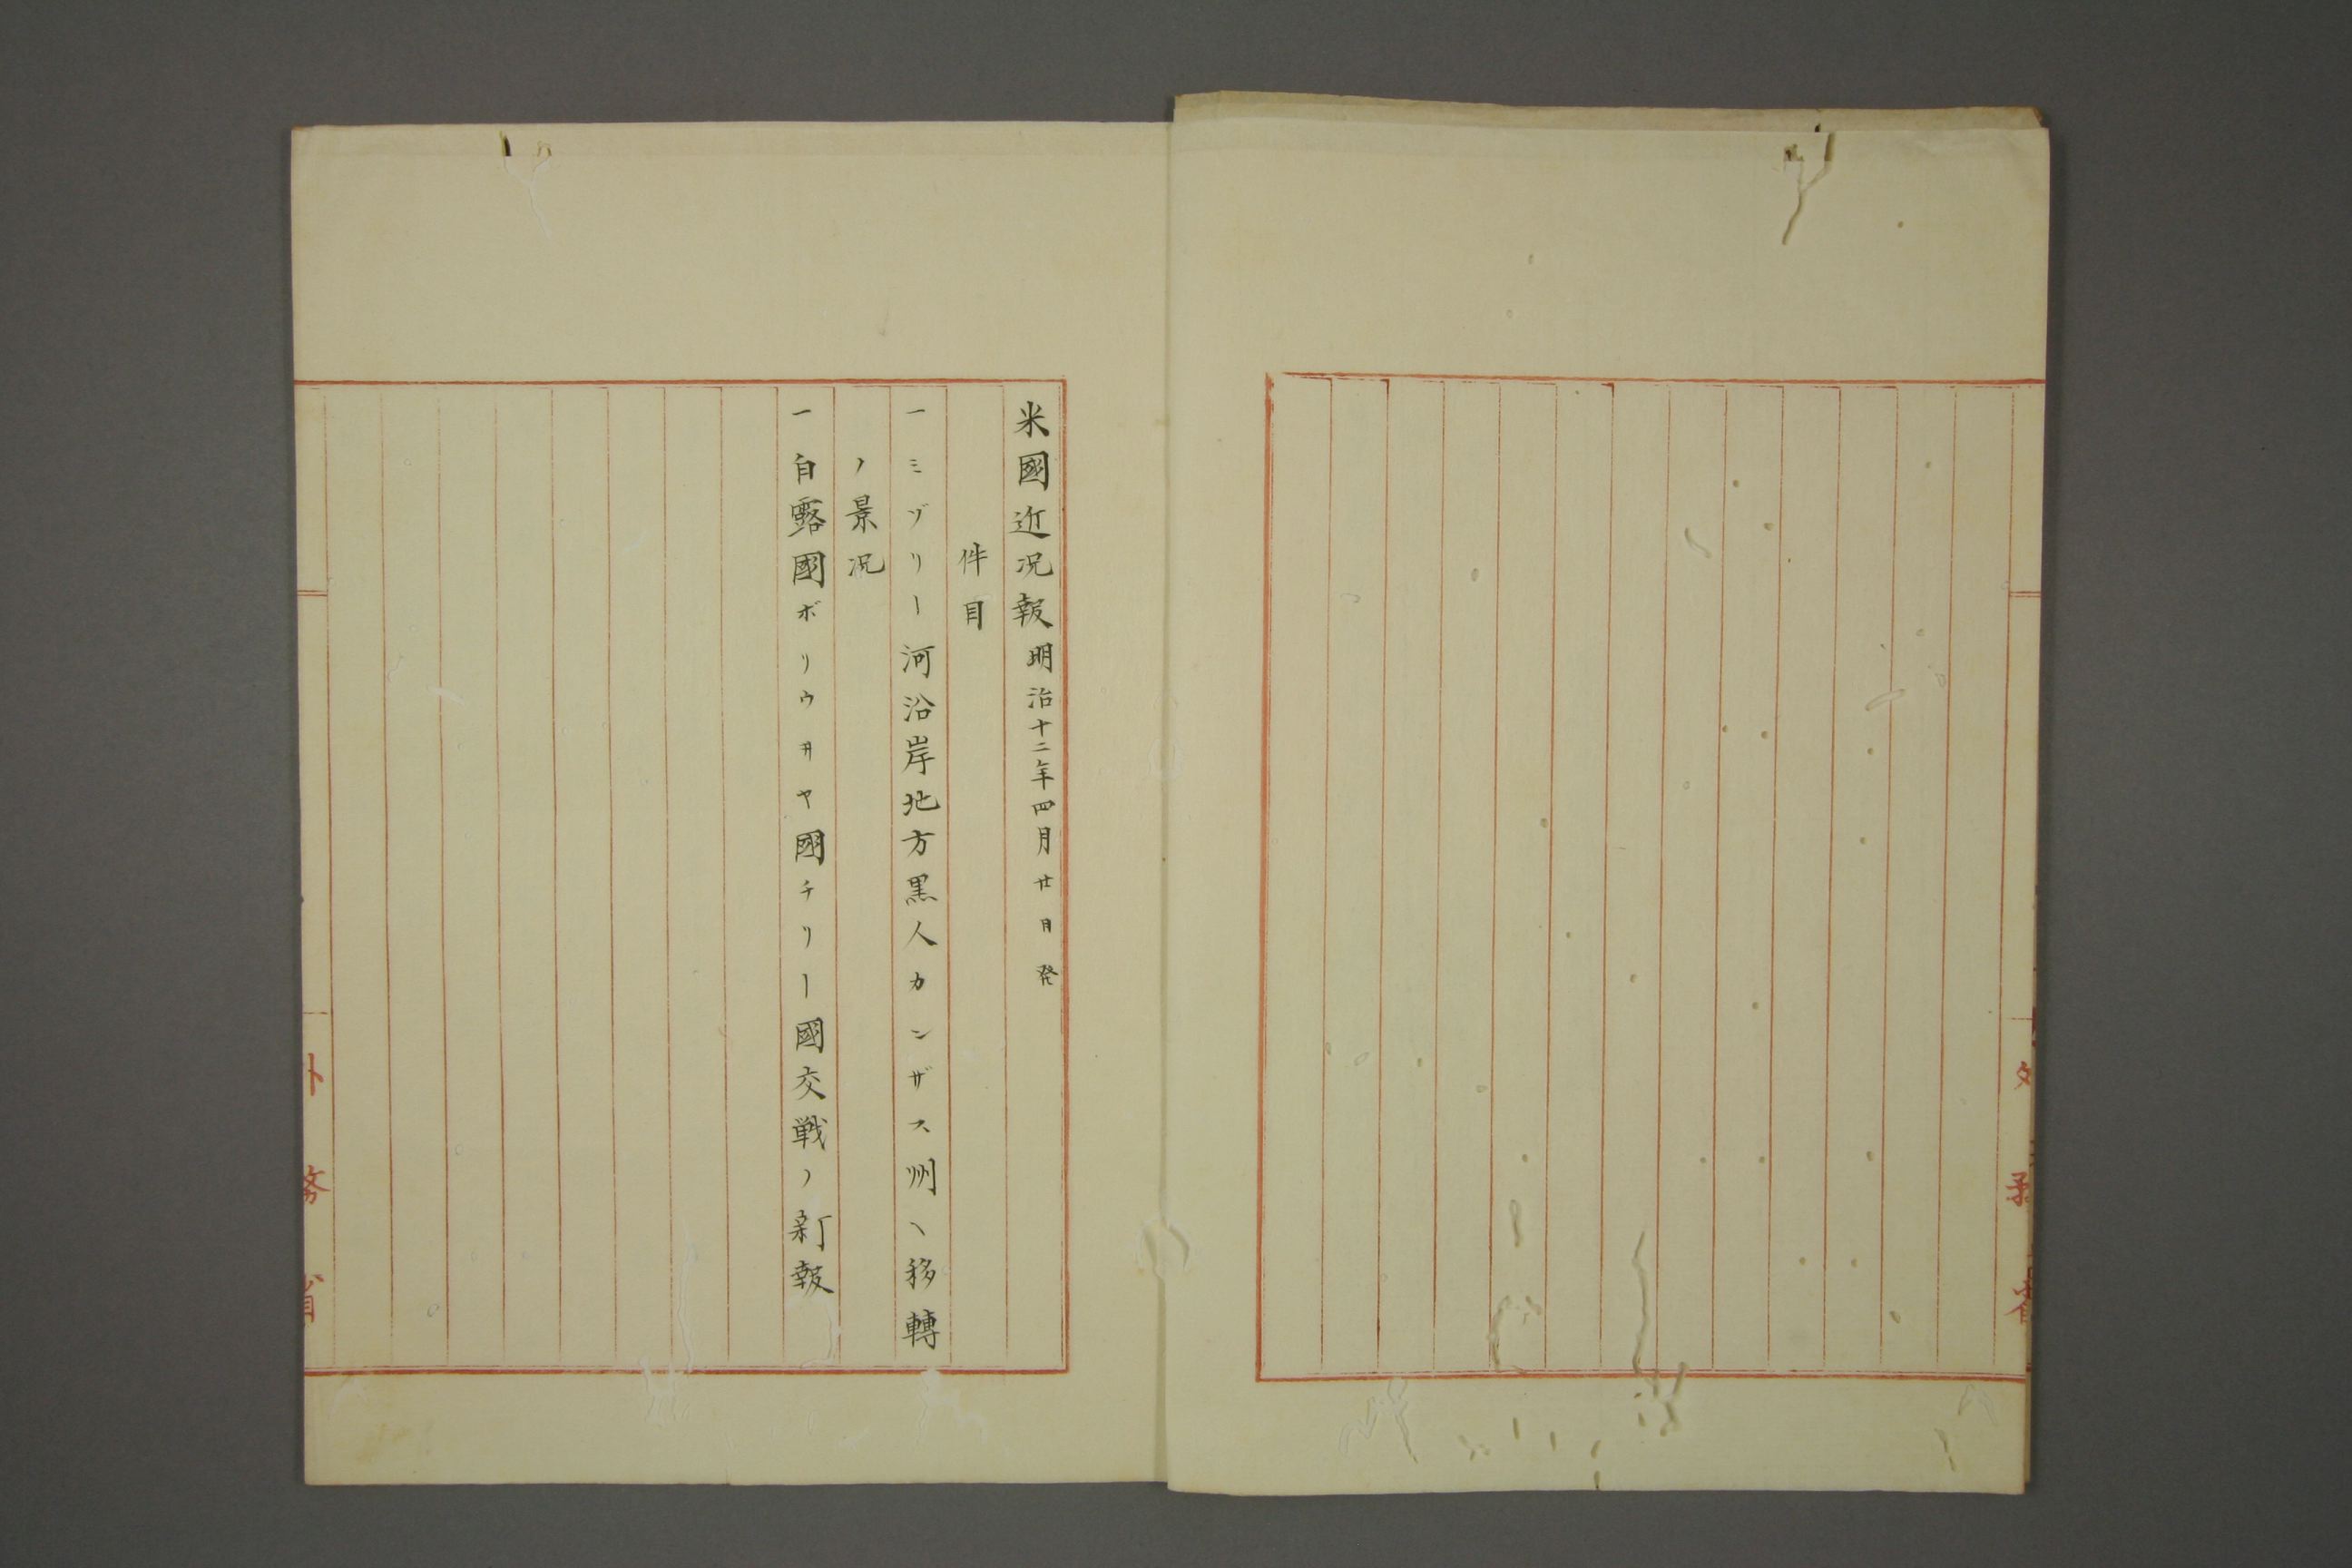 外務省
米國近况報明治十二年四月廿日発
件目
一ミヅリー河沿岸地方黒人カンザス州ヘ移轉
ノ景况
一白露國ボリウヰヤ國チリー國交戦ノ新報
外務省